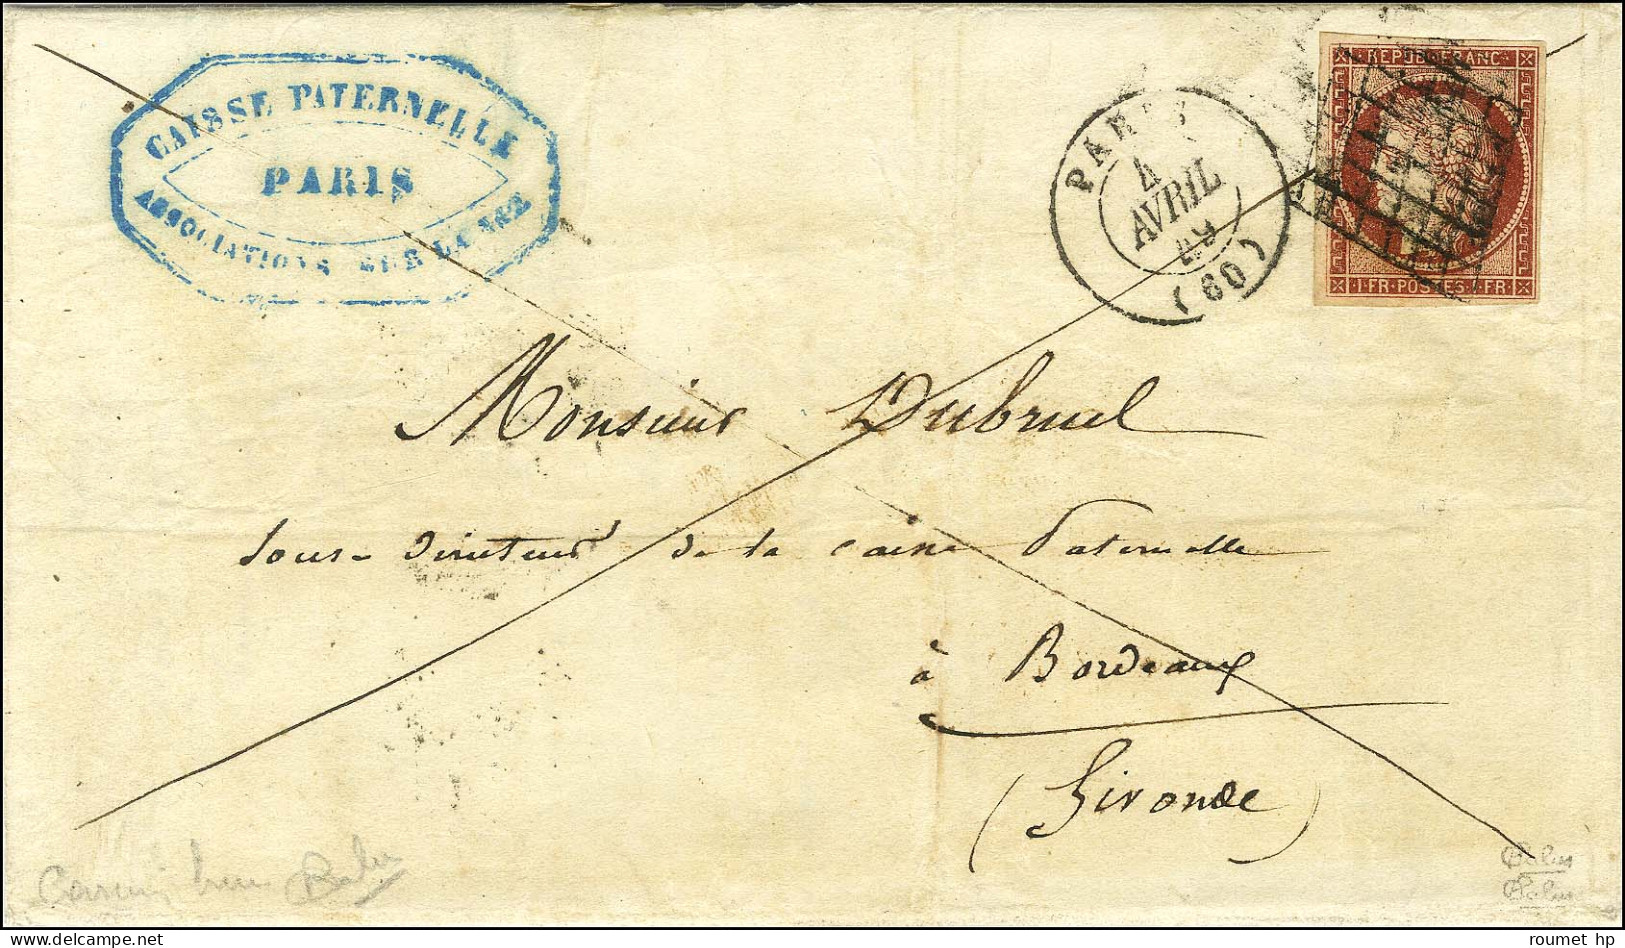 CAISSE PATERNELLE
PARIS
ASSOCIATIONS SUR LA VIE
PARIS
4
AVRIL
49
(60)
REPUB FRANC
1 FR POSTES 1 FR
Monsieur Dubruel
sous-Directeur de la caisse Paternelle
à Bordeaux
(Gironde)
Calves
Calves
roumet hp